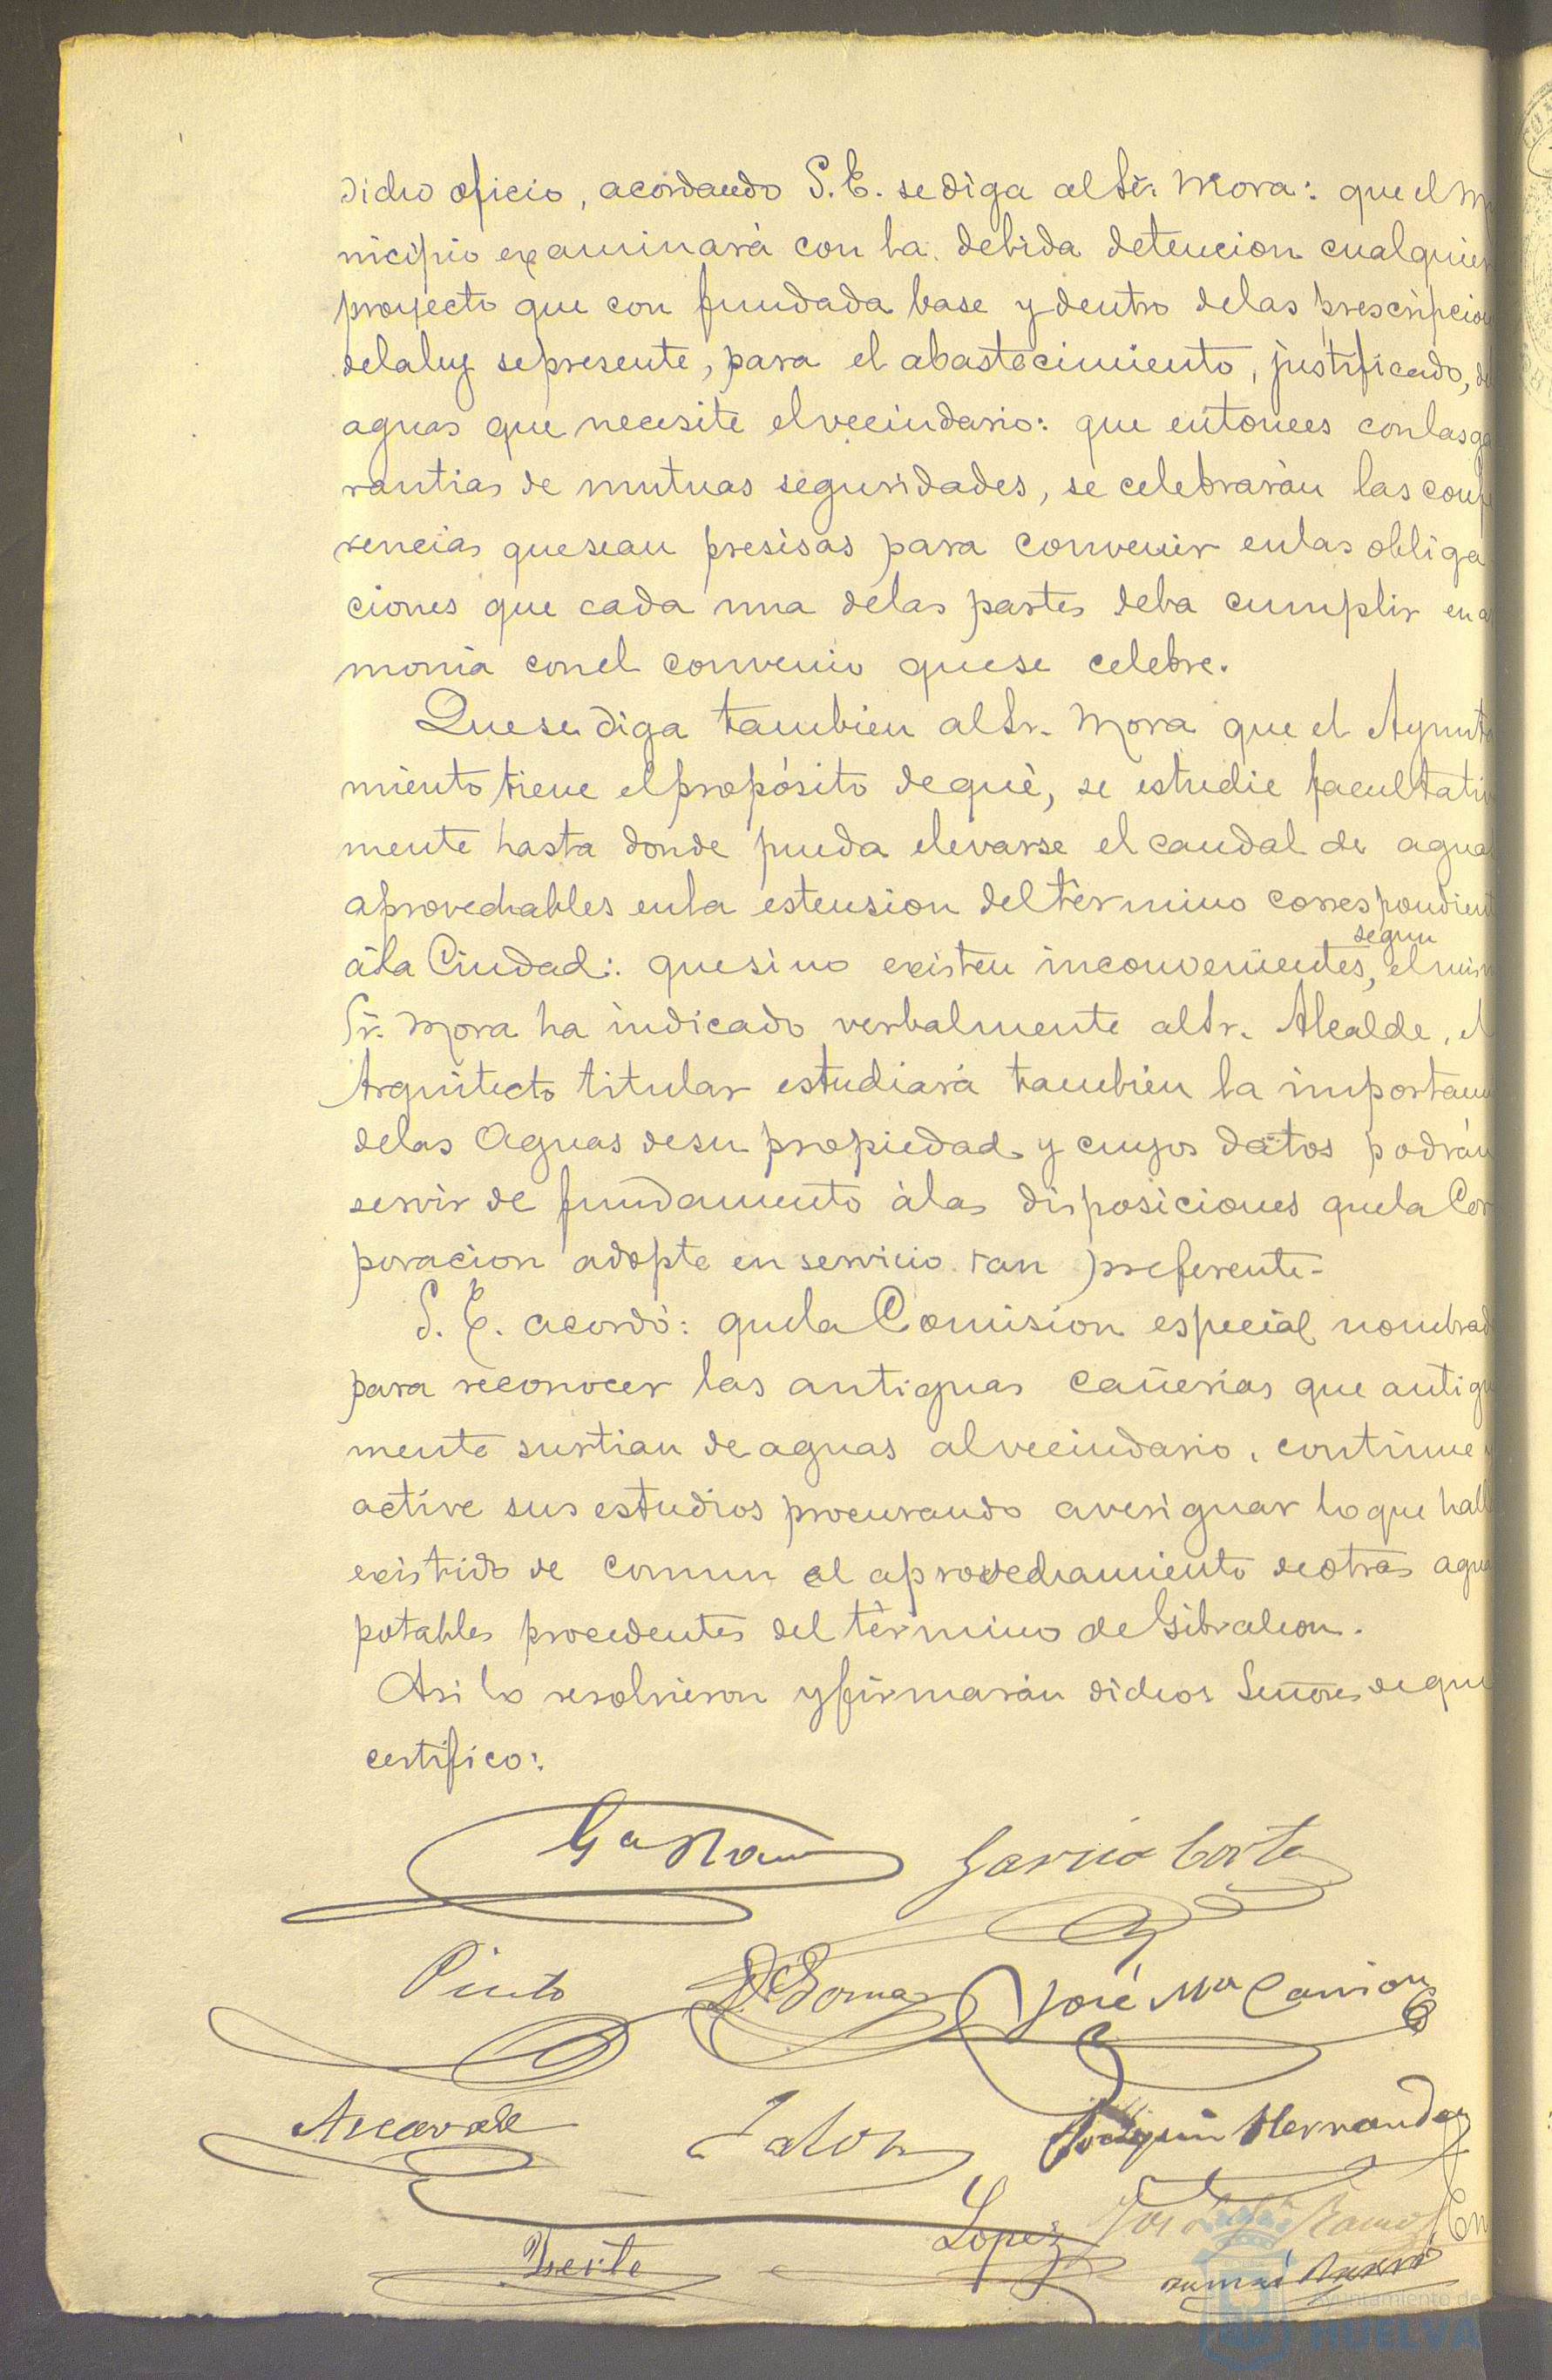 dicho oficio, acordando S.E. se diga al Sr. Mora: que el Mu
nicipio examinará con la debida detencion cualquier
proyecto que con fundada base y dentro de las prescripcion
de la ley se presente, para el abastecimiento, justificado, de
aguas que necesite el vecindario: que entonces con las ga
rantias de mutuas seguridades, se celebrarán las confe
rencias que sean presisas para convenir en las obliga
ciones que cada una de las partes deba cumplir en ar
monia con el convenio que se celebre.
Que se diga tambien al Sr. Mora que el Ayunta
miento tiene el propósito de qué, se estudie facultativ
mente hasta donde pueda elevarse el caudal de aguas
aprovechables en la estension del término correspondient
á la Ciudad: que si no existen inconvenientes, segun el mism
Sr. Mora ha indicado verbalmente al Sr. Alcalde, el
Arquitecto titular estudiará tambien la importan
de las Aguas de su propiedad y cuyos datos podrán
servir de fundamento á las disposiciones que la Cor
poracion adopte en servicio tan preferente-
S. E. acordó: que la Comision especial nombrad
para reconocer las antiguas cañerias que antigu
mente surtian de aguas al vecindario, continue y
active sus estudios procurando averiguar lo que hall
existido de comun al aprovechamiento de otras agua
potables procedentes del término de Gibraleon.
Asi lo resolvieron y firmarán dichos Señores de que
certifico:
Garcia Corte
Pinto José Mª Carrion
Joaquin Hernandez
Lopez Ramos
Ayuntamiento de
HUELVA